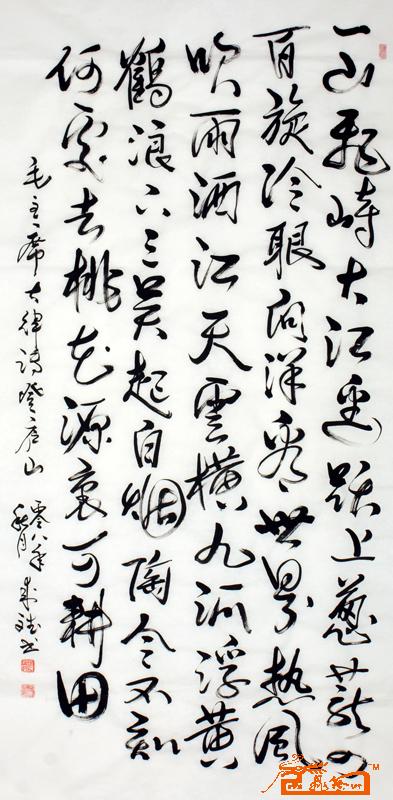 一山飛峙大江邊跃上葱蘢四
百旋冷眼向洋看世界热風
吹雨洒江天雲横九派浮黄
鶴浪下三吴起白烟陶令不知
何處去桃花源裏可耕田
毛主席七律诗登庐山
零八年
秋月